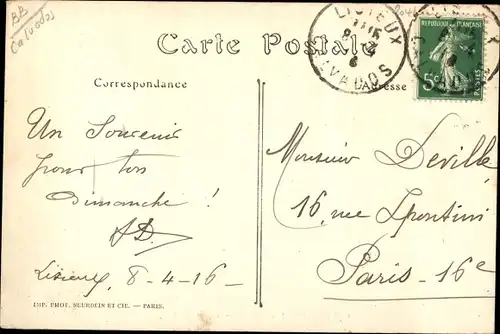 BB
Calvados
LISIEUX
CALVADOS
RÉPUBLIQUE FRANÇAISE
5c
POSTES
Carte Postale
Correspondance
Adresse
Un Souvenir
pour ton
Dimanche !
Lisieux 8-4-16-
Monsieur Deville
16, rue Spontini
Paris-16e
IMP. PHOT. NEURDEIN ET CIE. — PARIS.